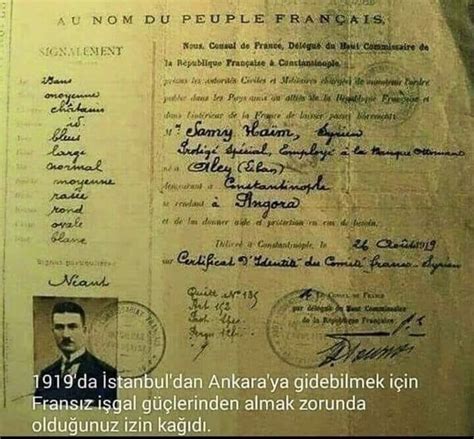 AU NOM DU PEUPLE FRANÇAIS,
SIGNALEMENT
ans
moyenne
châtains
id
bleus
large
normal
moyenne
rasée
rond
ovale
blanc
Signes particuliers
Néant
Nous, Consul de France, Délégué du Haut Commissaire de
la République Française à Constantinople,
prions les autorités Civiles et Militaires chargées de maintenir l'ordre
public dans les Pays amis ou alliés de la République Française et
dans l'intérieur de la France de laisser passer librement
Mr Samy Haïm, Syrien
Protégé Spécial, Employé à la Banque Ottomane
né à Aley (Liban)
demeurant à Constantinople
se rendant à Angora
et de lui donner aide et protection en cas de besoin.
Délivré à Constantinople, le 26 Août 1919
sur Certificat d'Identité du Comité franco-Syrien
Quitt. No 135
Art 152
LE CONSUL DE FRANCE
par délégation du Haut Commissaire
de la République Française,
1919'da İstanbul'dan Ankara'ya gidebilmek için
Fransız işgal güçlerinden almak zorunda
olduğunuz izin kağıdı.